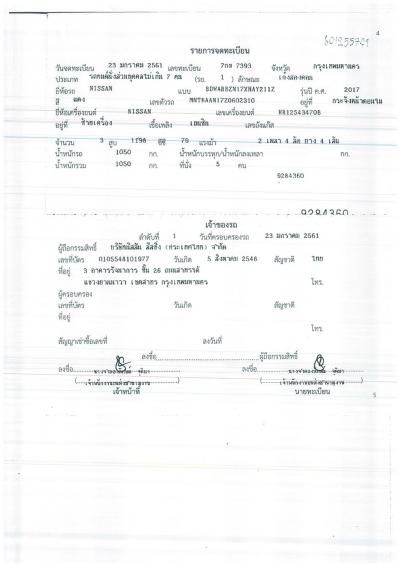 4
601255701
รายการจดทะเบียน
วันจดทะเบียน 23 มกราคม 2561 เลขทะเบียน 7กส 7393 จังหวัด กรุงเทพมหานคร
ประเภท รถยนต์นั่งส่วนบุคคลไม่เกิน 7 คน (รย. 1 ) ลักษณะ เก๋งสองตอน
ยี่ห้อรถ NISSAN แบบ BDVABBZN17XHAY211Z รุ่นปี ค.ศ. 2017
สี แดง เลขตัวรถ MNTBAAN17Z0602310 อยู่ที่
ยี่ห้อเครื่องยนต์ NISSAN เลขเครื่องยนต์ HR12543470B
อยู่ที่ ซ้ายเครื่อง เชื้อเพลิง เบนซิน เลขถังแก๊ส
จำนวน 3 สูบ 1198 ซีซี 79 แรงม้า 2 เพลา 4 ล้อ ยาง 4 เส้น
น้ำหนักรถ 1050 กก. น้ำหนักบรรทุก/น้ำหนักลงเพลา กก.
น้ำหนักรวม 1050 กก. ที่นั่ง 5 คน
9284360
9284360
เจ้าของรถ
ลำดับที่ 1 วันที่ครอบครองรถ 23 มกราคม 2561
ผู้ถือกรรมสิทธิ์ บริษัทนิสสัน ลีสซิ่ง (ประเทศไทย) จำกัด
เลขที่บัตร 0105548101977 วันเกิด 5 สิงหาคม 2548 สัญชาติ ไทย
ที่อยู่ 3 อาคารรัจนาการ ชั้น 26 ถนนสาทรใต้
แขวงยานนาวา เขตสาทร กรุงเทพมหานคร โทร.
ผู้ครอบครอง
เลขที่บัตร วันเกิด สัญชาติ
ที่อยู่
โทร.
สัญญาเช่าซื้อเลขที่ ลงวันที่
ลงชื่อ ผู้ถือกรรมสิทธิ์
ลงชื่อ ลงชื่อ
เจ้าหน้าที่ นายทะเบียน
5